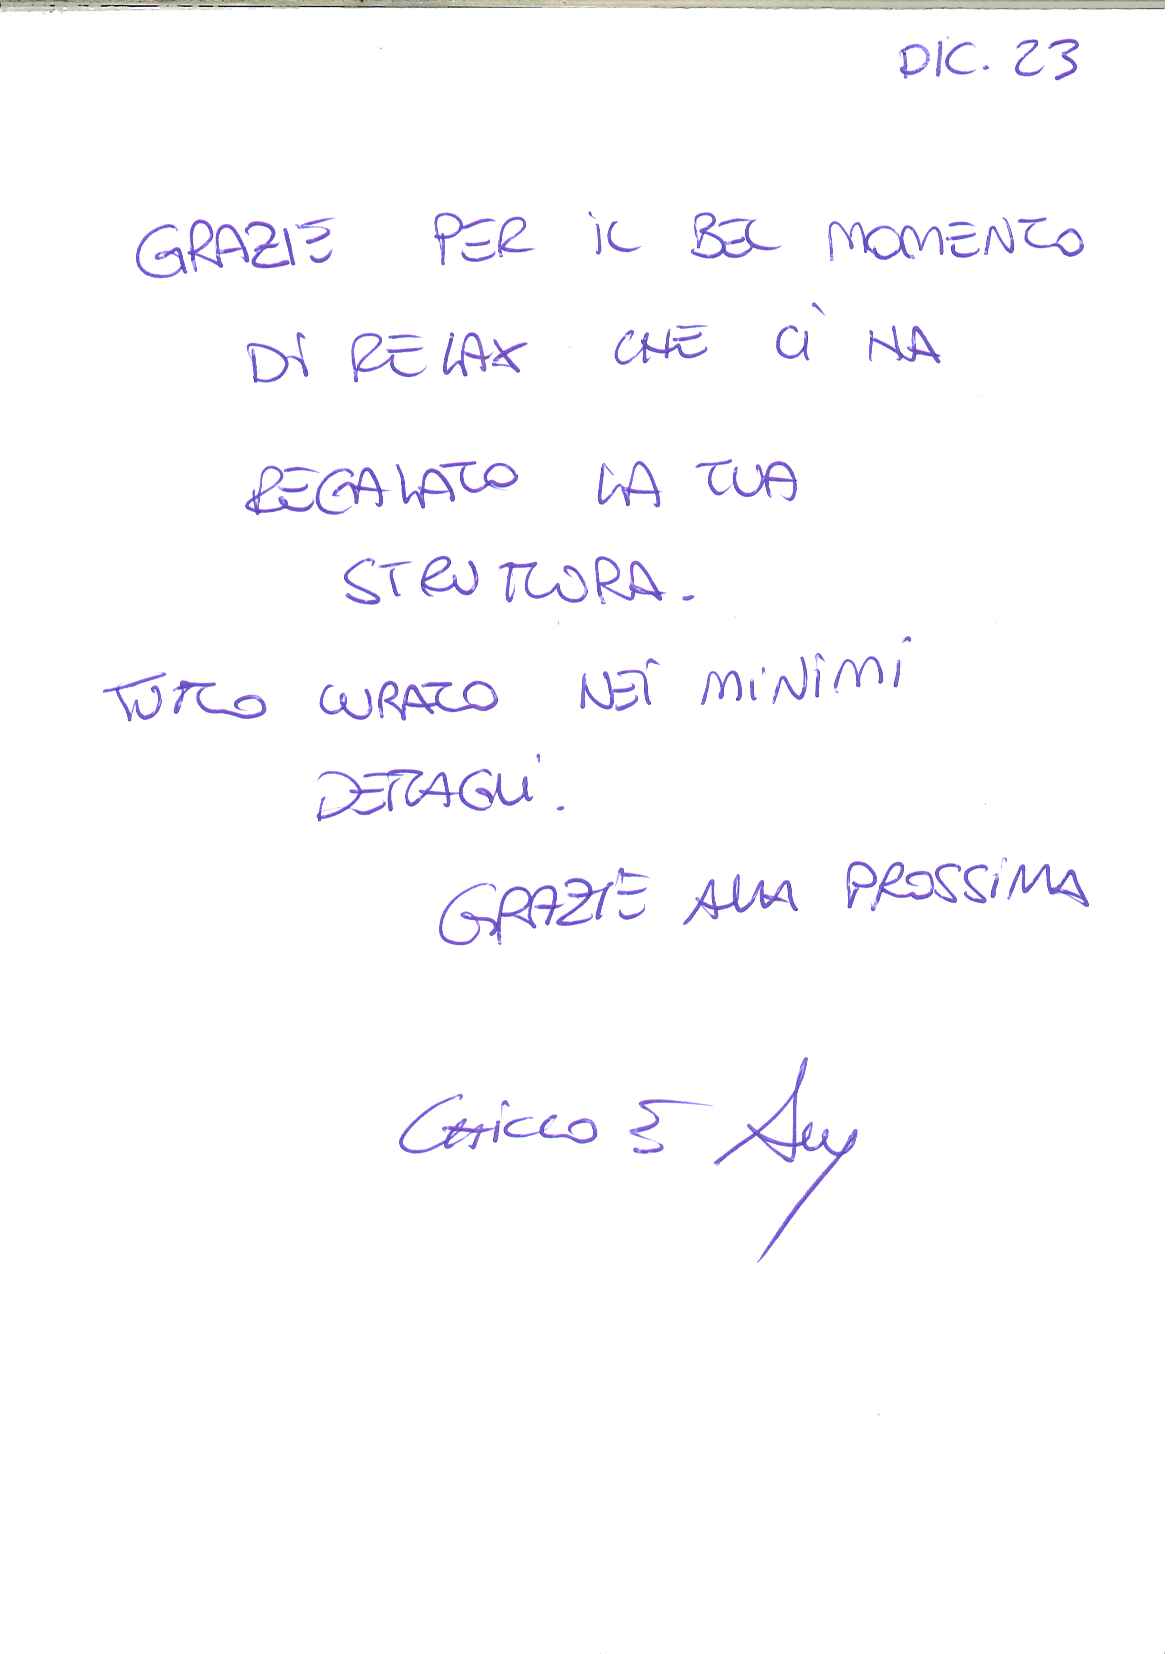 DIC. 23
GRAZIE PER IL BEL MOMENTO
DI RELAX CHE CI HA
REGALATO LA TUA
STRUTTURA.
TUTTO CURATO NEI MINIMI
DETTAGLI.
GRAZIE ALLA PROSSIMA
CHICCO E